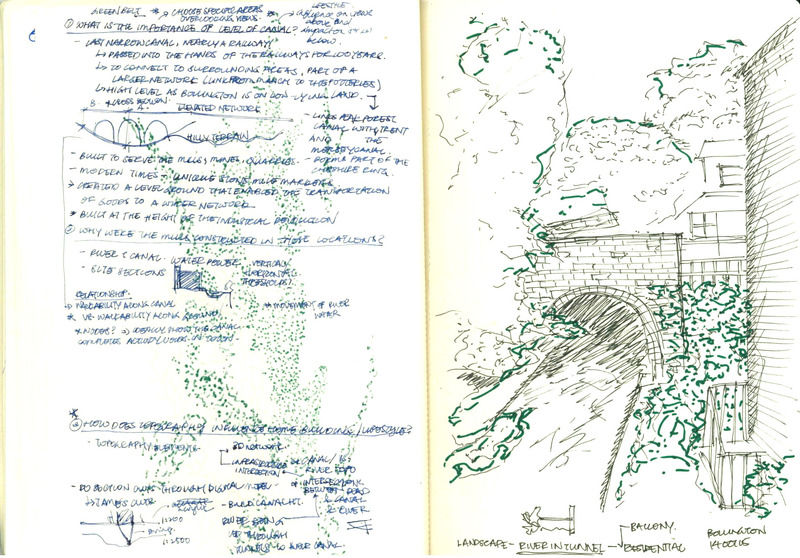 GREEN BELT → CHOOSE SPECIFIC AREAS
OVERLOOKING VIEWS.
LIFESTYLE
INFLUENCE ON VIEWS
ABOVE AND
BELOW.
① WHAT IS THE IMPORTANCE OF LEVEL OF CANAL?
- LAST NARROW CANAL, NEARLY A RAILWAY!
↳ PASSED INTO THE HANDS OF THE RAILWAYS FOR 100 YEARS.
↳ TO CONNECT TO SURROUNDING AREAS, PART OF A
LARGER NETWORK (LINK FROM MACC TO THE POTTERIES)
↳ HIGH LEVEL AS BOLLINGTON IS ON LOW-LYING LAND.
CROSS SECTION.
ELEVATED NETWORK
HILLY TERRAIN
- LINKS PEAK FOREST
CANAL WITH TRENT
AND THE
MERSEY CANAL.
- FORMS PART OF THE
CHESHIRE RING.
- BUILT TO SERVE THE MILLS, MINES, QUARRIES.
- MODERN TIMES - UNIQUE STONE MILE MARKERS
→ CREATED A LEVEL GROUND THAT ENABLED THE TRANSPORTATION
OF GOODS TO A WIDER NETWORK
* BUILT AT THE HEIGHT OF THE INDUSTRIAL REVOLUTION
② WHY WERE THE MILLS CONSTRUCTED IN THESE LOCATIONS?
- RIVER & CANAL. WATER POWER.
- SITE SECTIONS
VERTICAL/
HORIZONTAL
THRESHOLDS!
RELATIONSHIP.
→ WALKABILITY ALONG CANAL
* VS. WALKABILITY ALONG GROUND
→ MOVEMENT OF RIVER
WATER
* NODES? → IDEALLY SHOW THE CANAL
③ HOW DOES TOPOGRAPHY INFLUENCE HOME BUILDING/LIFESTYLE?
- TOPOGRAPHY ELEMENTS
3D NETWORK
INFRASTRUCTURE
INTERSECTION
CANAL/
RIVER TOPO
INTERSECTIONS
BETWEEN ROAD
& CANAL
& RIVER
- DO SECTION CUTS THROUGH DIGITAL MODEL
- BUILD CANAL HT.
1:200
1:2500
RIVER BEING
THROUGH
TUNNELS UNDER CANAL.
- BALCONY.
LANDSCAPE - RIVER IN TUNNEL - RESIDENTIAL
BOLLINGTON
14 OCT 15